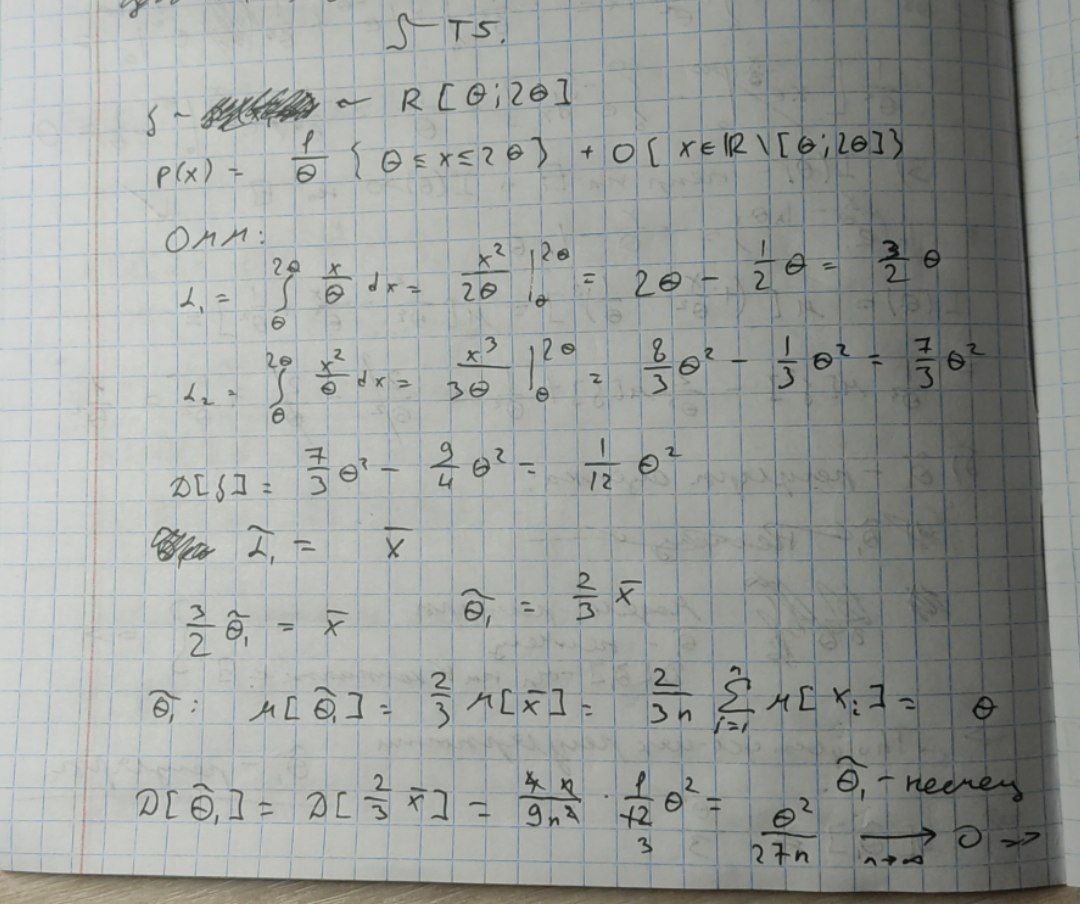 ∫ - T5.
ξ ~ R [θ; 2θ]
p(x) = 1/θ {θ ≤ x ≤ 2θ} + 0 {x ∈ ℝ \ [θ; 2θ]}
ОММ:
α₁ = ∫_θ^{2θ} x/θ dx = x²/2θ |_θ^{2θ} = 2θ - 1/2 θ = 3/2 θ
α₂ = ∫_θ^{2θ} x²/θ dx = x³/3θ |_θ^{2θ} = 8/3 θ² - 1/3 θ² = 7/3 θ²
D[ξ] = 7/3 θ² - 9/4 θ² = 1/12 θ²
α̃₁ = x̄
3/2 θ̃₁ = x̄ θ̃₁ = 2/3 x̄
θ̃₁: M[θ̃₁] = 2/3 M[x̄] = 2/3n Σ_{i=1}^n M[x_i] = θ
θ̃₁ - несмещ
D[θ̃₁] = D[2/3 x̄] = 4 n/9n² · 1/12 θ² = θ²/27n ⟶_{n→∞} 0 ⇒